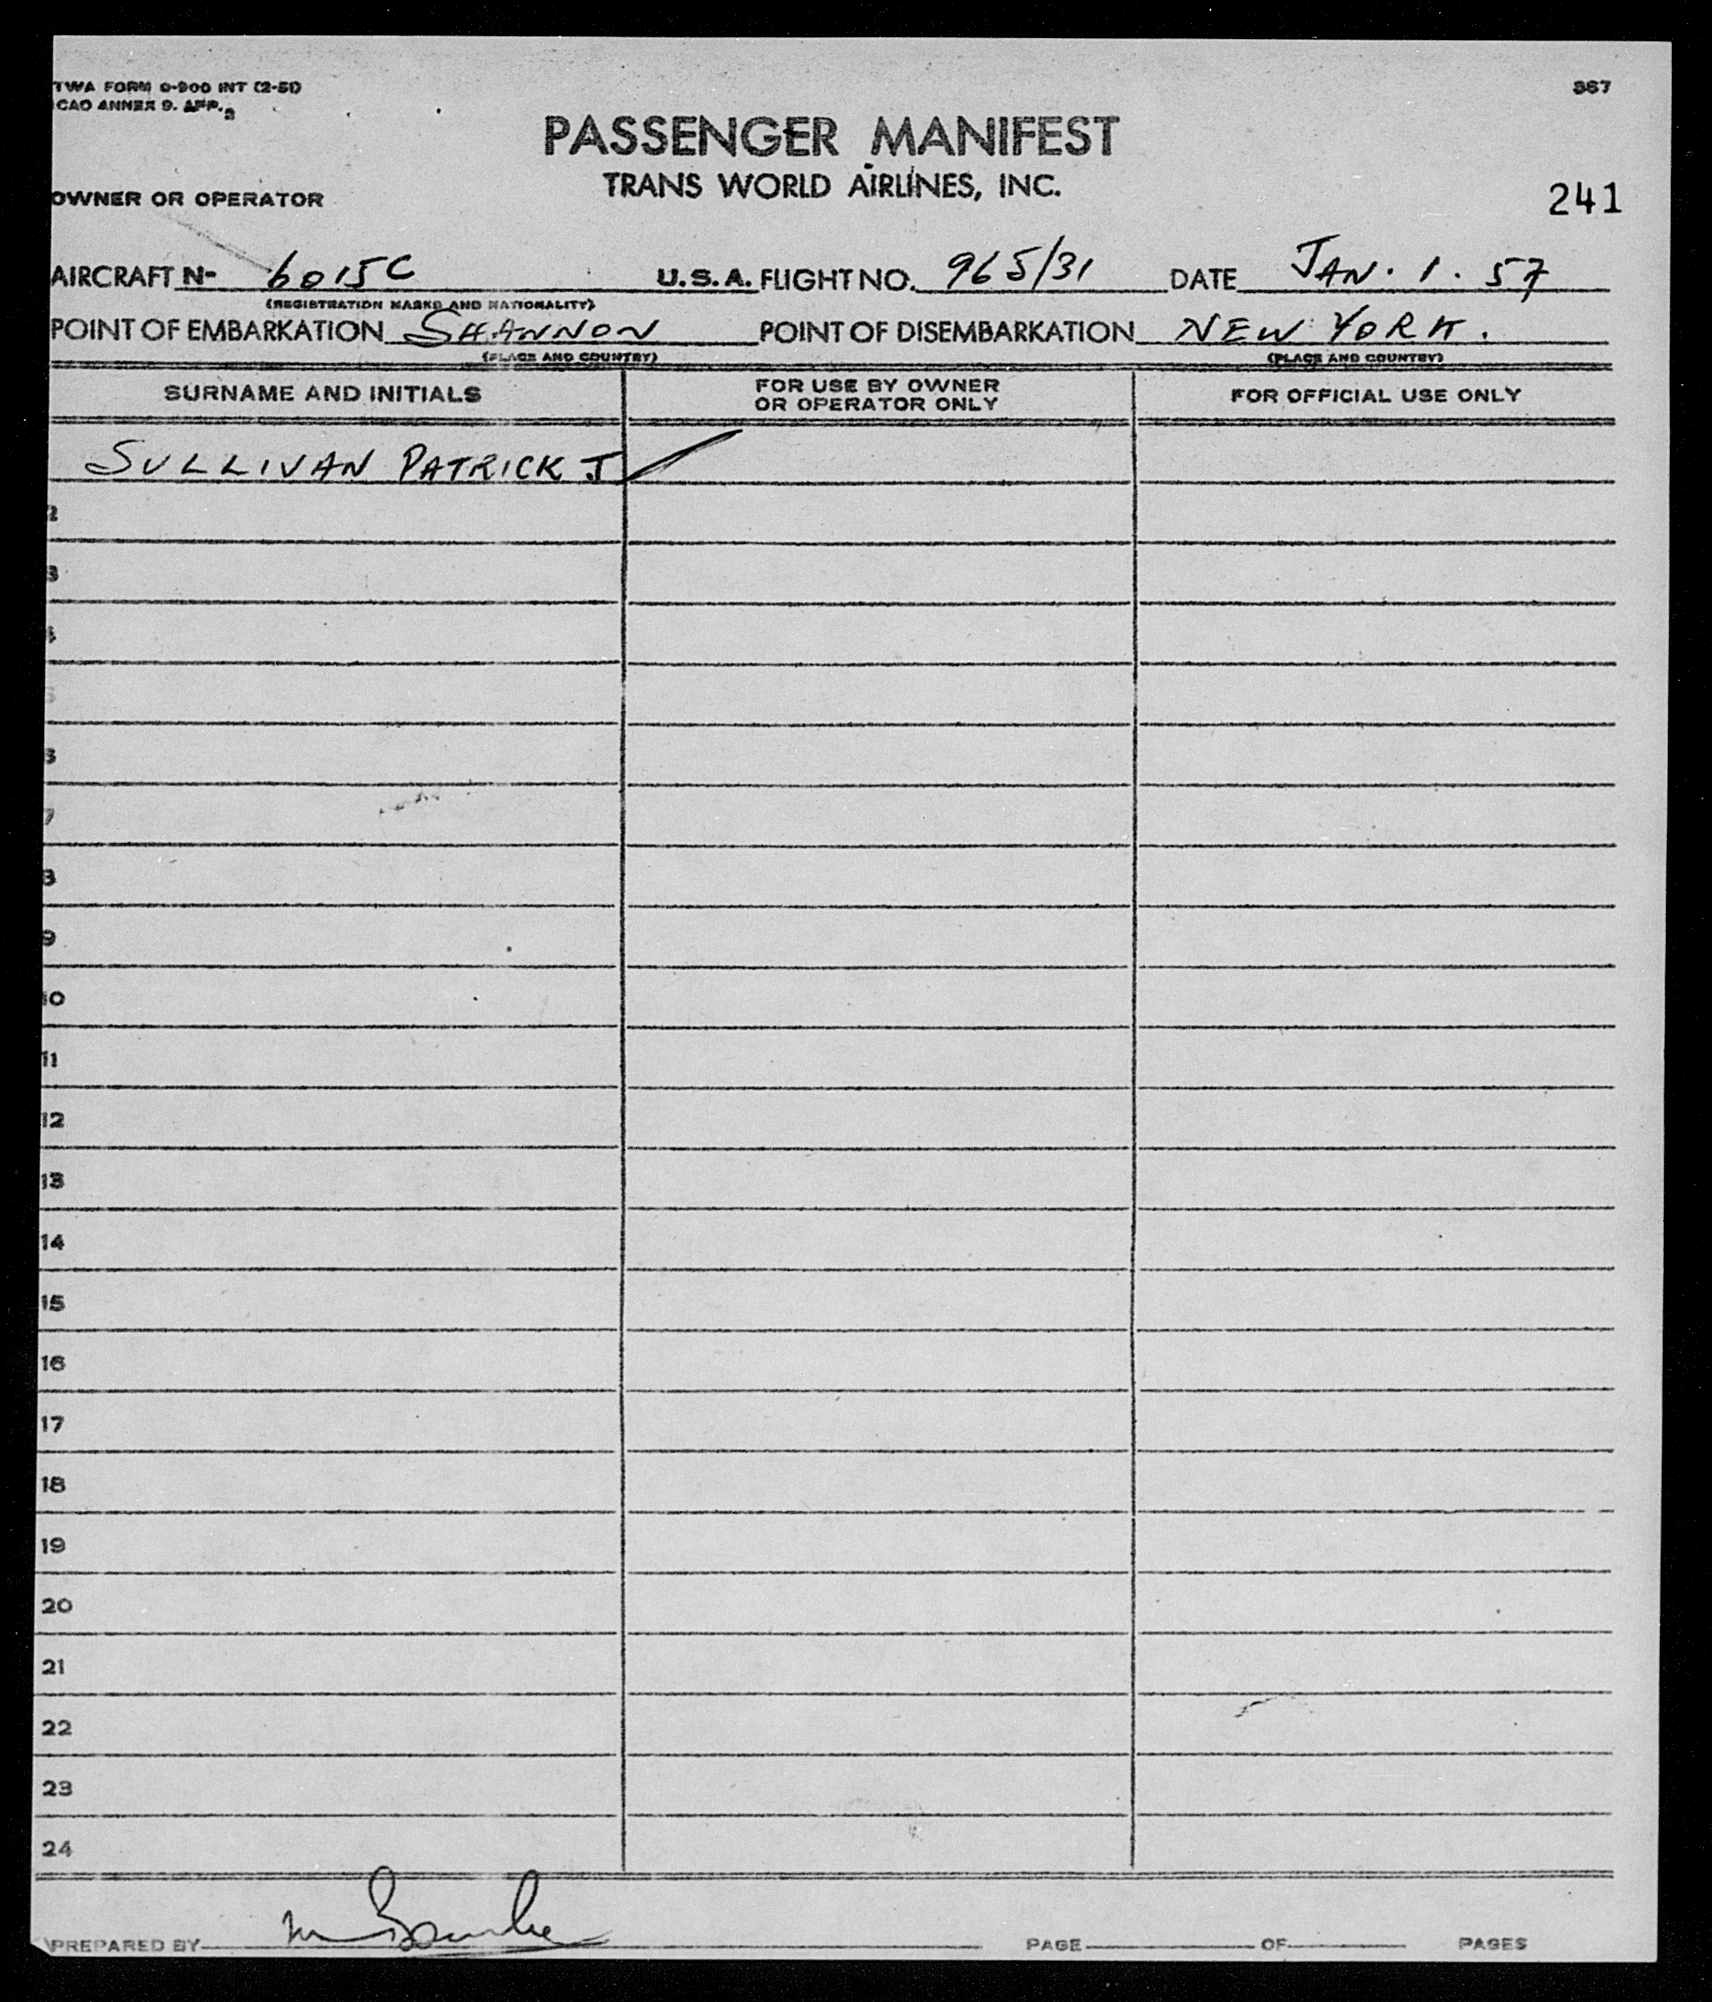 TWA FORM 0-900 INT (2-51) 367
ICAO ANNEX 9. APP. 3
PASSENGER MANIFEST
TRANS WORLD AIRLINES, INC.
OWNER OR OPERATOR 241
AIRCRAFT N- 6015C U.S.A. FLIGHT NO. 965/31 DATE JAN. 1. 57
(REGISTRATION MARKS AND NATIONALITY)
POINT OF EMBARKATION SHANNON POINT OF DISEMBARKATION NEW YORK.
(PLACE AND COUNTRY) (PLACE AND COUNTRY)
SURNAME AND INITIALS FOR USE BY OWNER OR OPERATOR ONLY FOR OFFICIAL USE ONLY
SULLIVAN PATRICK J
2
3
4
5
6
7
8
9
10
11
12
13
14
15
16
17
18
19
20
21
22
23
24
PREPARED BY PAGE OF PAGES